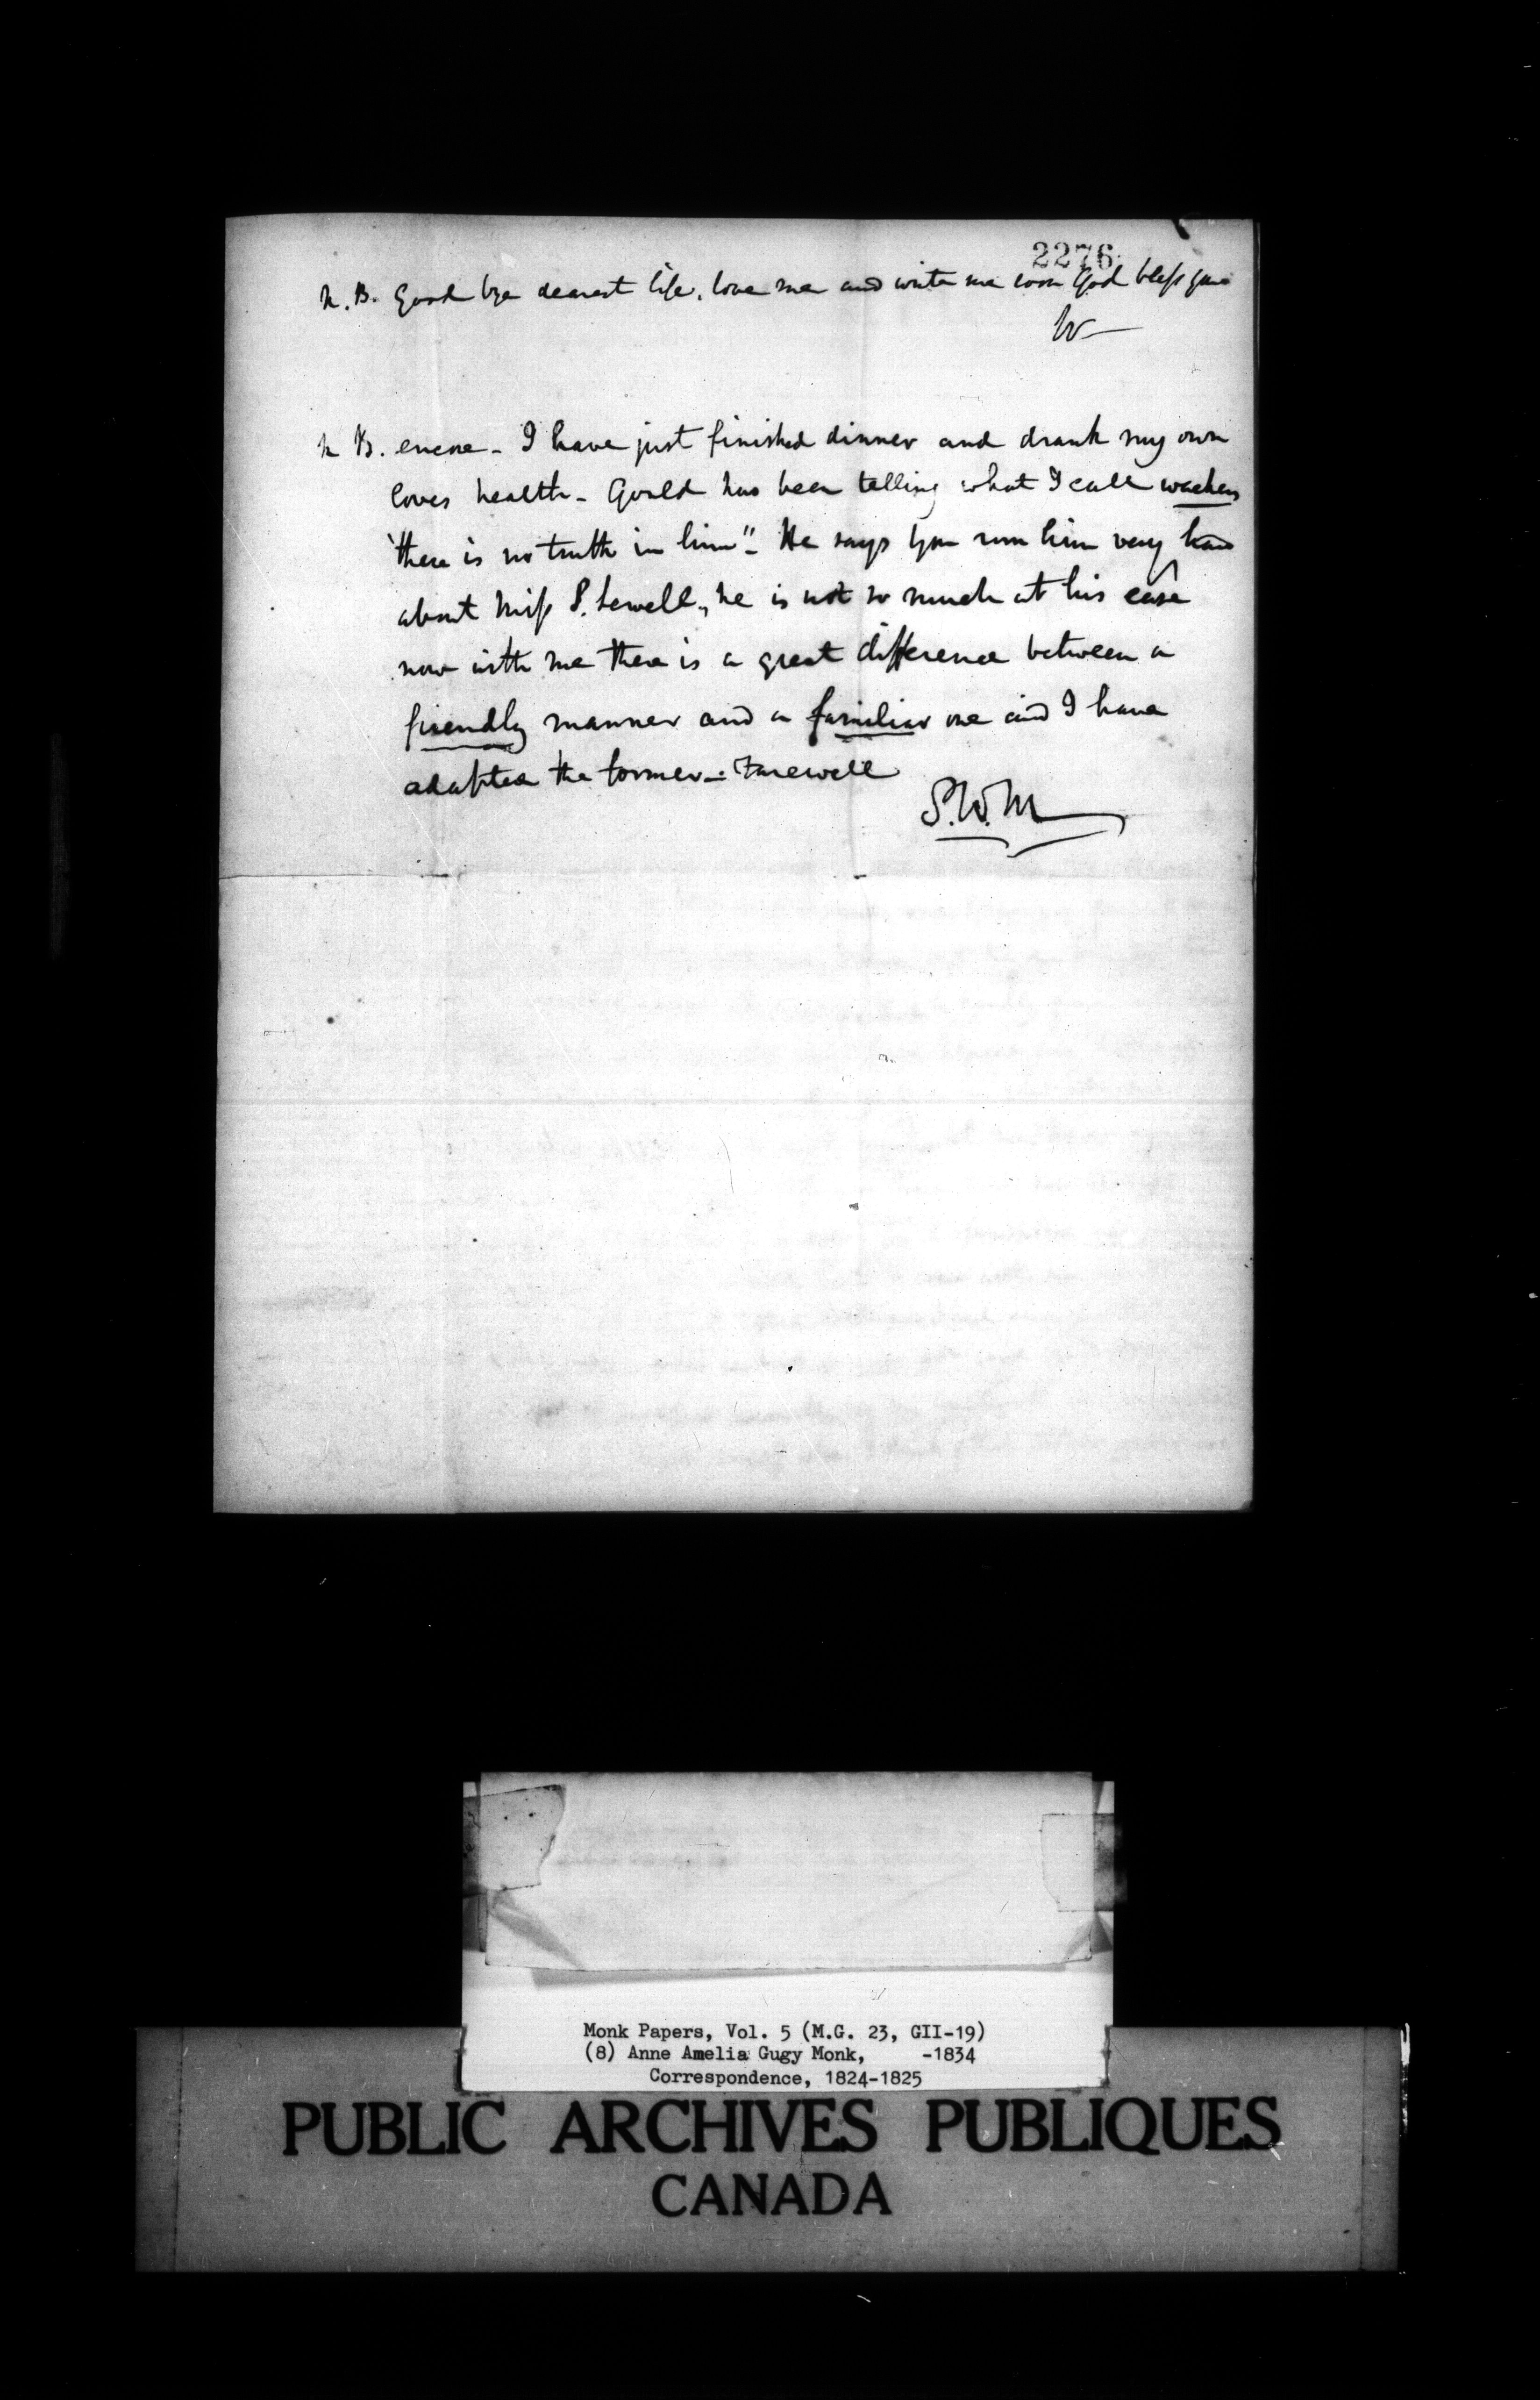 2276
N.B. Good bye dearest life, love me and write me soon God bless you
W
N B. encore - I have just finished dinner and drank my own
loves health - Gould has been telling what I call wackers
"there is no truth in him" - He says you run him very hard
about Miss S. Sewell, he is not so much at his ease
now with me there is a great difference between a
friendly manner and a familiar one and I have
adopted the former - Farewell
S.W.M
Monk Papers, Vol. 5 (M.G. 23, GII-19)
(8) Anne Amelia Gugy Monk, -1834
Correspondence, 1824-1825
PUBLIC ARCHIVES PUBLIQUES
CANADA